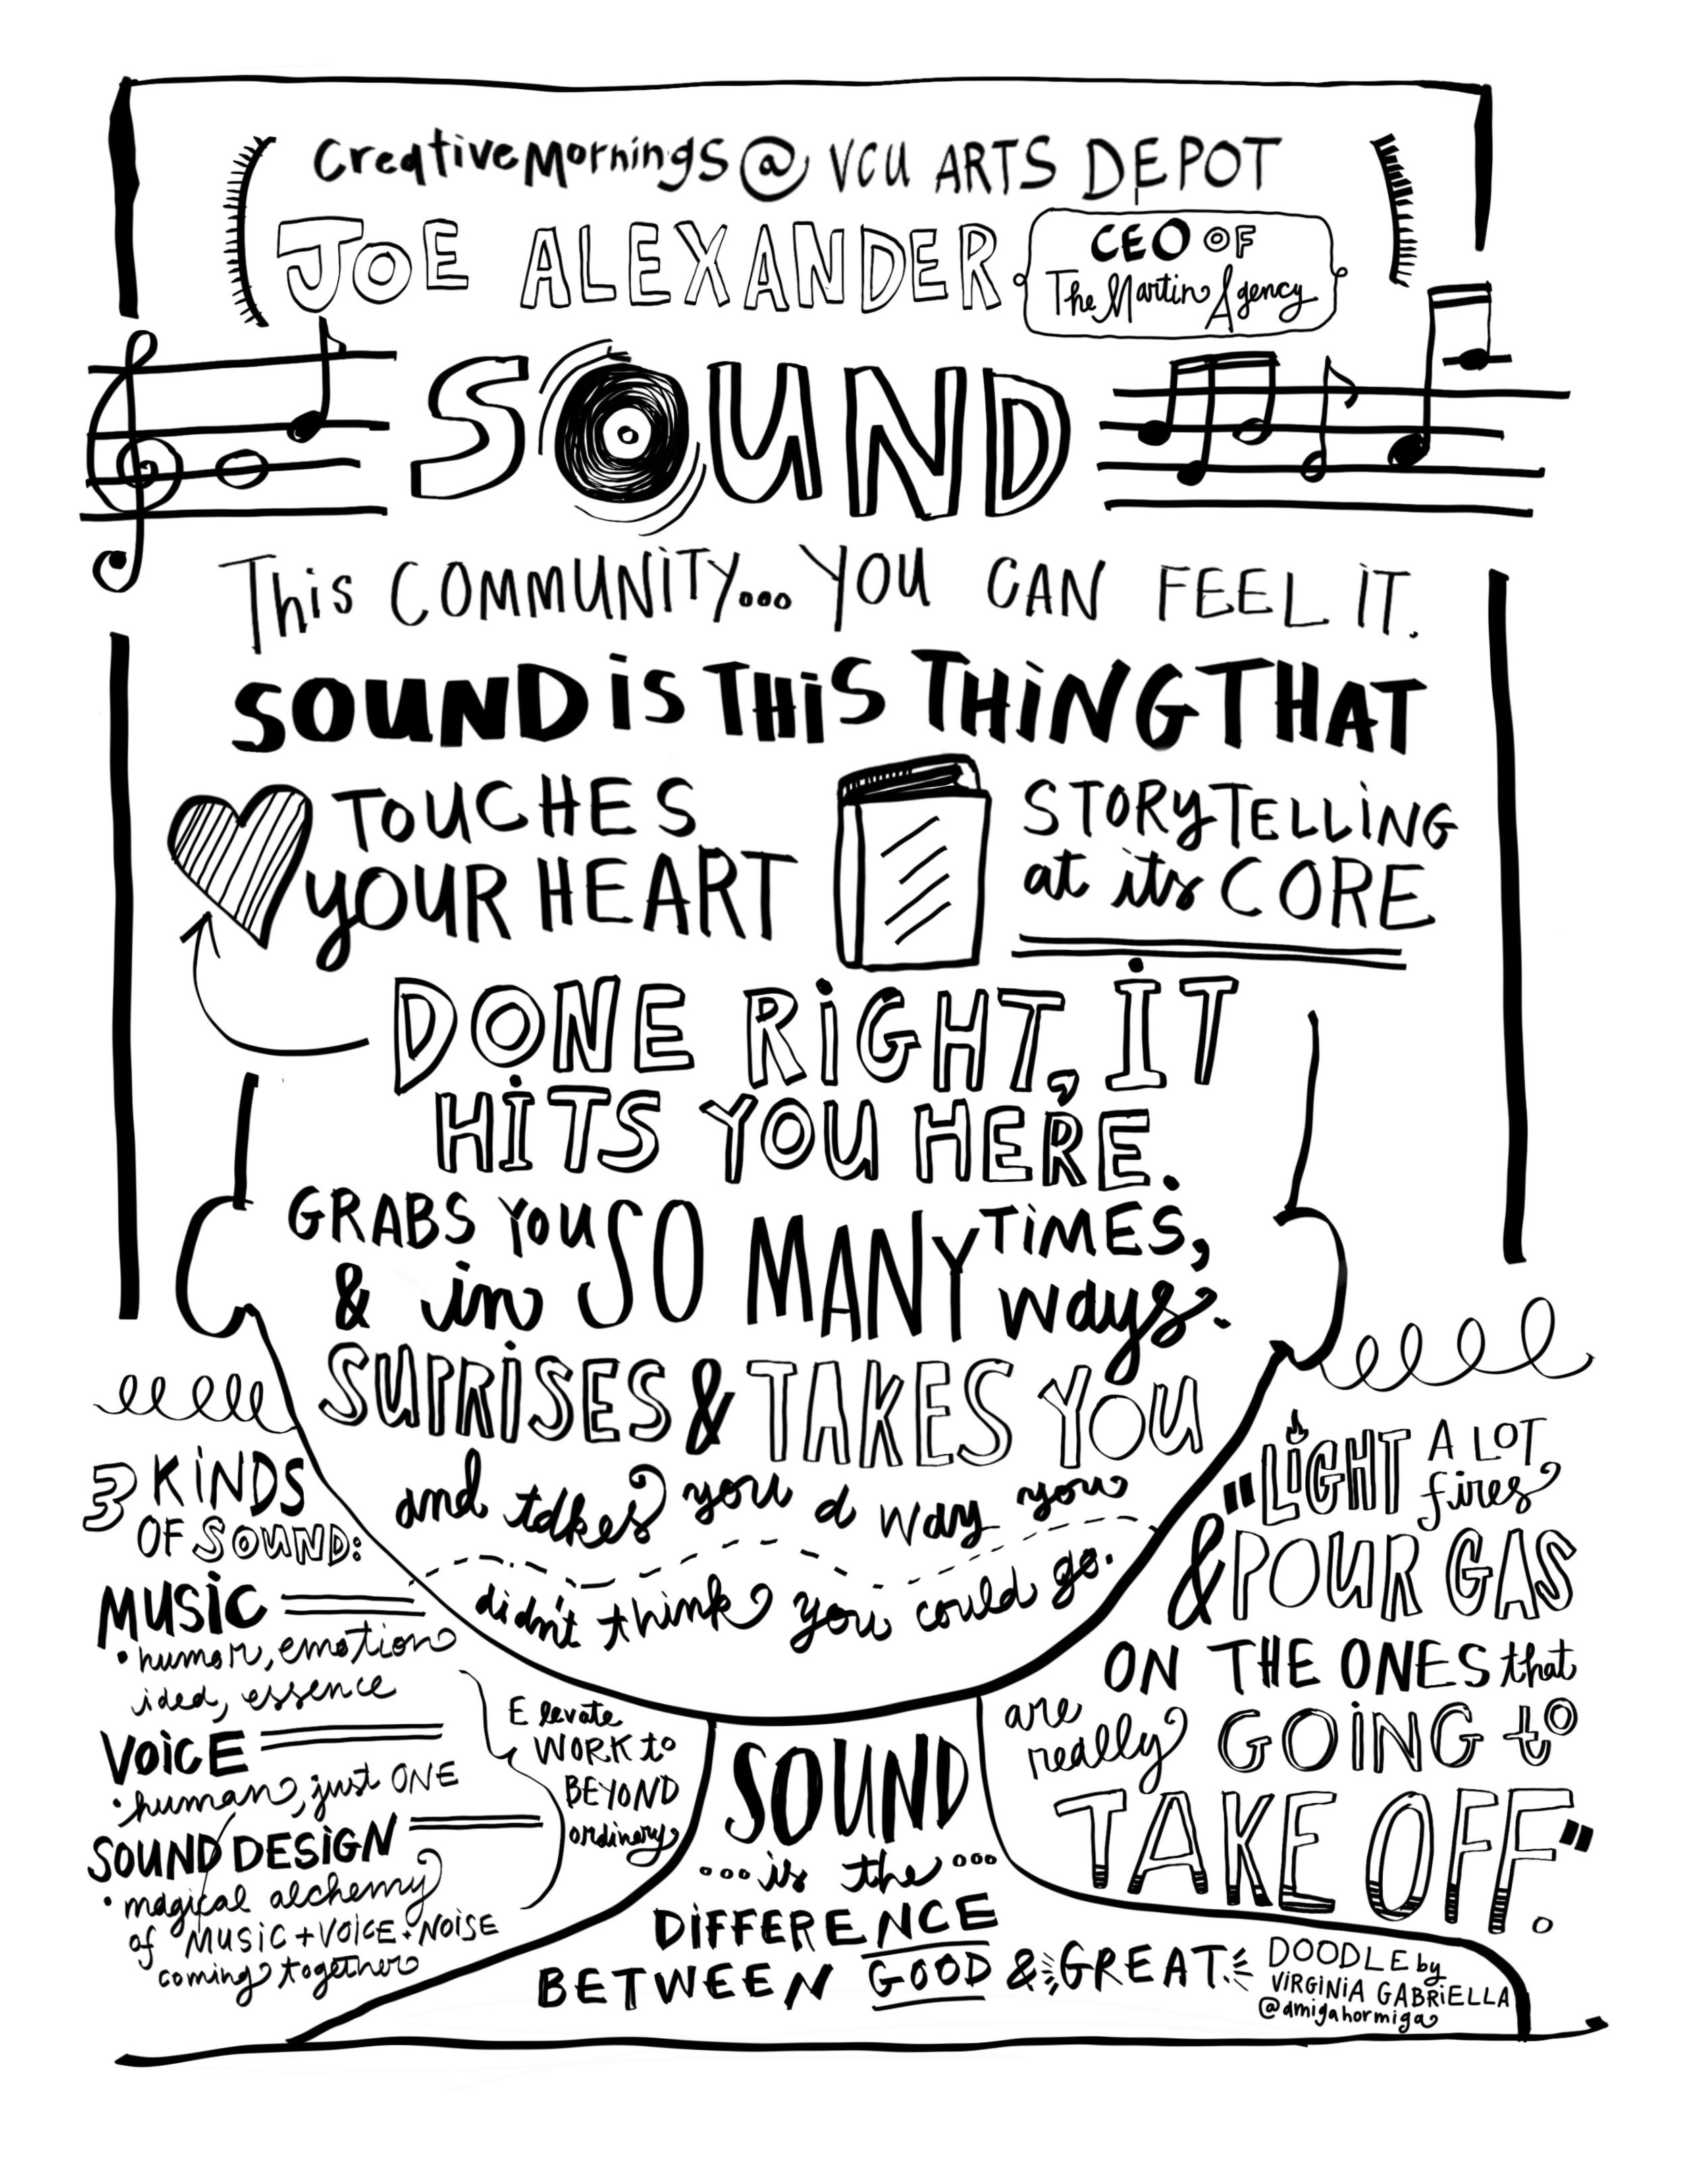 CreativeMornings @ VCU ARTS DEPOT
JOE ALEXANDER
CEO OF
The Martin Agency
SOUND
This COMMUNITY... YOU CAN FEEL IT.
SOUND iS THiS THiNG THAT
TOUCHES
YOUR HEART
STORYTELLING
at its CORE
DONE RiGHT, iT
HiTS YOU HERE.
GRABS YOU SO MANY TiMES,
& in SO MANY ways.
SUPRiSES & TAKES YOU
and takes you a way you
didn't think you could go.
3 KiNDS
OF SOUND:
MUSiC
• humor, emotion
idea, essence
VOiCE
• human, just ONE
SOUND DESiGN
• magical alchemy
of MUSiC + VOiCE + NOiSE
coming together
Elevate
WORK to
BEYOND
ordinary
SOUND
...is the...
DiFFERENCE
BETWEEN GOOD & GREAT.
"LiGHT A LOT
fires
& POUR GAS
ON THE ONES that
are really GOiNG to
TAKE OFF."
DOODLE by
ViRGiNiA GABRiELLA
@amigahormiga